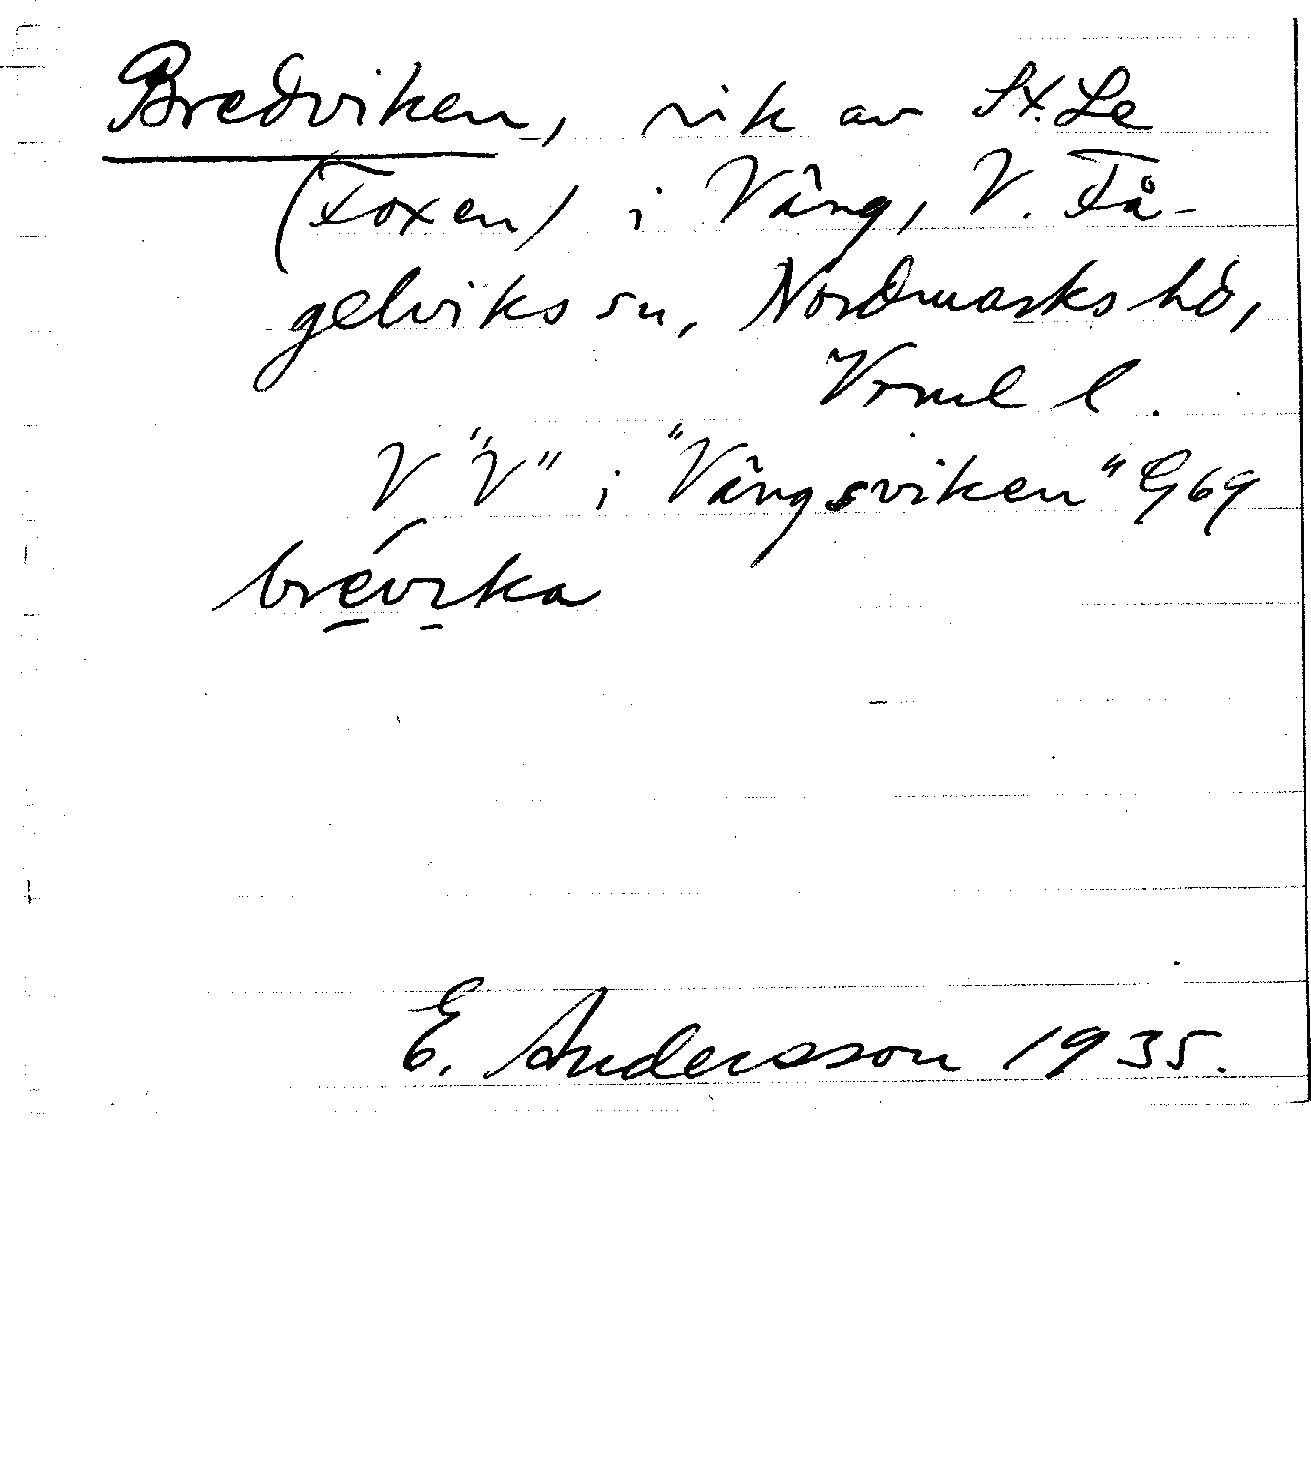 Bredviken, vik av St. Le
(Foxen) i Vång, V. Få-
gelviks sn, Nordmarks hd,
Vrml l.
V "V" i "Vångsviken" G69
brévika
E. Andersson 1935.